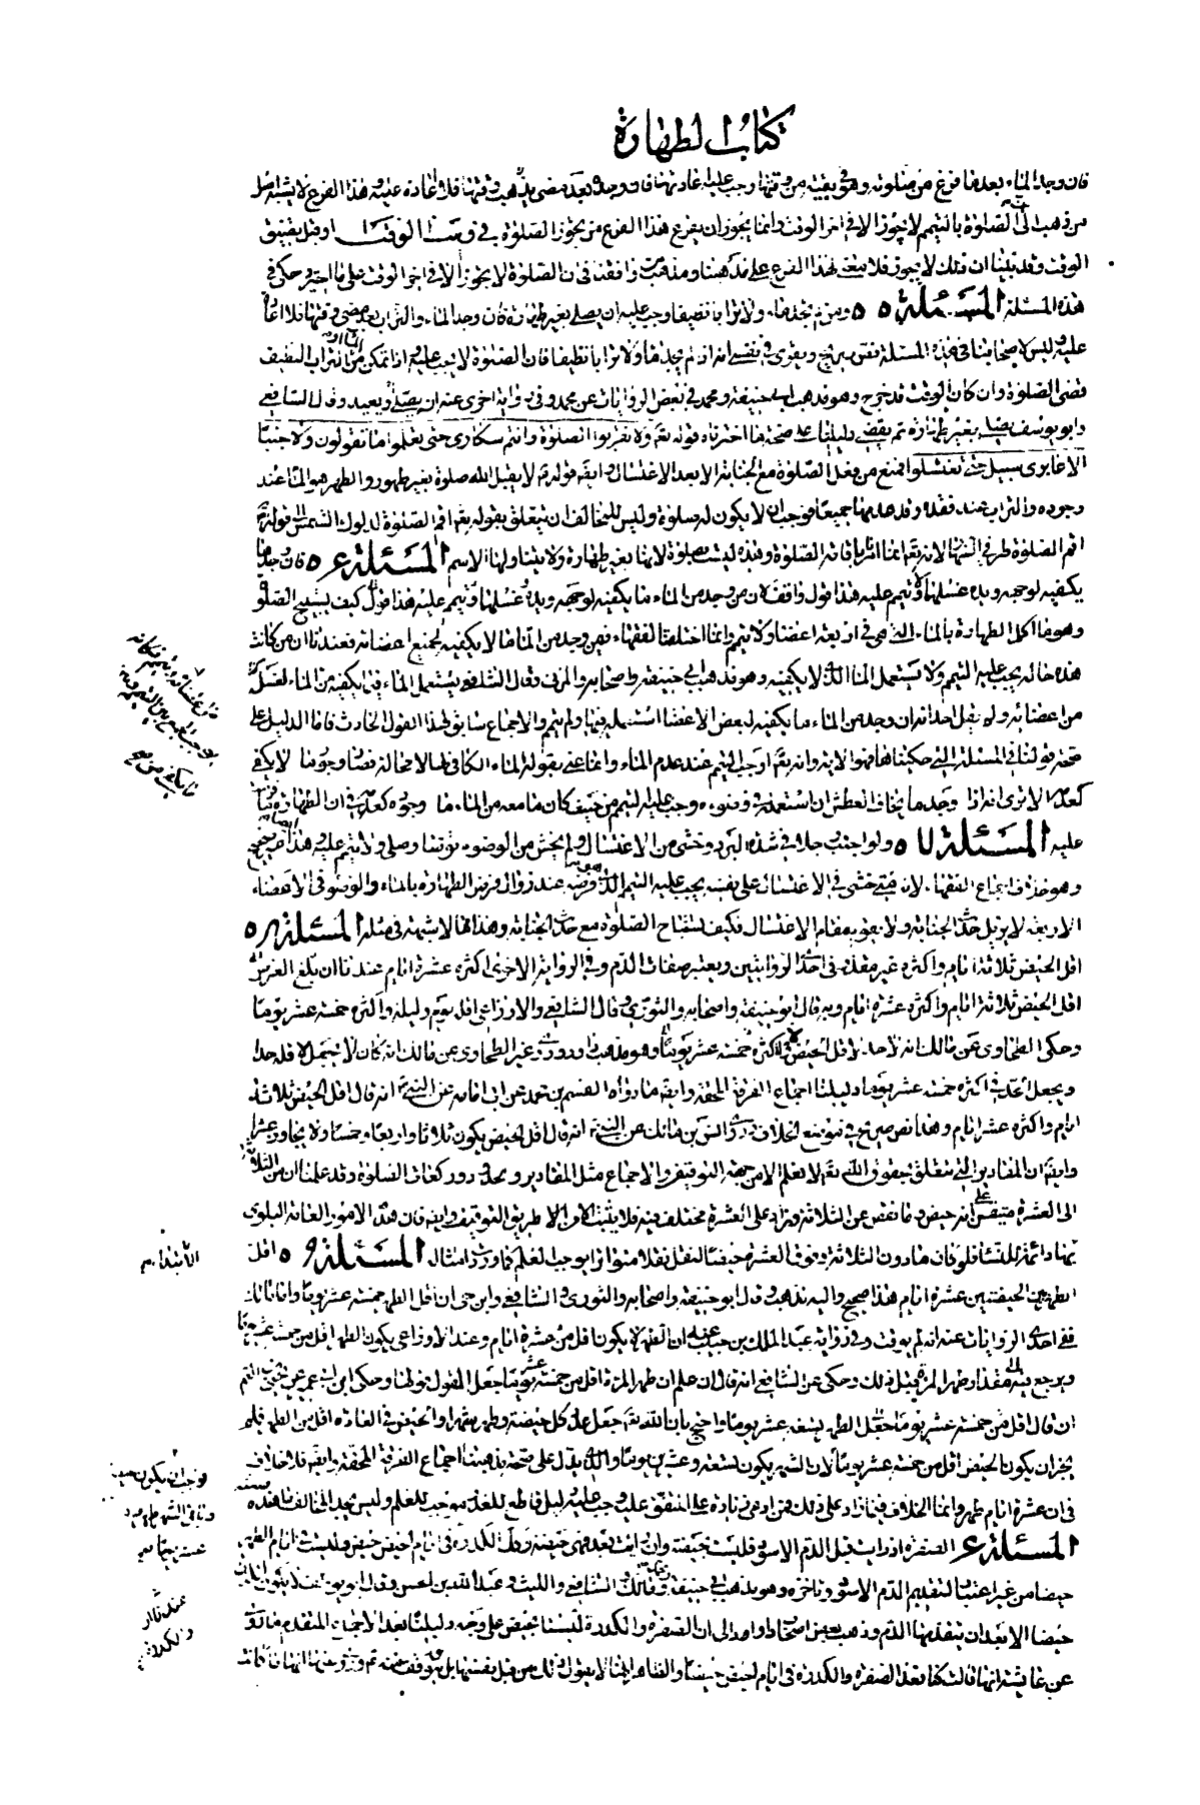 كتاب الطهارة
فان وجد الماء بعد ما فرغ من صلوته وهو في بقية من وقتها وجب عليه اعادتها فان وجده بعد مضى وقتها فلا اعادة عليه وهذا الفرع لا يشبه اصل
من ذهب الى ان الصلوة بالتيمم لا يجوز الا في اخر الوقت وانما يجوز ان يفرع هذا الفرع من يجوز الصلوة في وسط الوقت او قبل تضيق
الوقت وقد بينا ان ذلك لا يجوز فلا معنى لهذا الفرع على مذهبنا ومذهب من وافقنا في ان الصلوة لا يجوز الا في اخر الوقت على ما اخبر وحكى في
هذه المسئلة المسئلة ٥٥ ومن لم يجد ماء ولا ترابا نظيفا وجب عليه ان يصلى بغير طهارة فان وجد الماء والتراب بعد مضى وقتها فلا اعادة
عليه وليس لاصحابنا في هذه المسئلة نص صريح ويقوى في نفسى انه اذا لم يجد ماء ولا ترابا نظيفا فان الصلوة لا يجب عليه واذا تمكن من الماء او التراب النظيف
قضى الصلوة وان كان الوقت قد خرج وهو مذهب ابى حنيفة ومحمد في بعض الروايات عن محمد وفي رواية اخرى عنه ان يصلى ويعيد وقال الشافعي
وابو يوسف يصلى بغير طهارة ثم يقضى دليلنا على صحة ما اخترناه قوله تعالى ولا تقربوا الصلوة وانتم سكارى حتى تعلموا ما تقولون ولا جنبا
الا عابرى سبيل حتى تغتسلوا فمنع من فعل الصلوة مع الجنابة الا بعد الاغتسال وايضا قوله لا يقبل الله صلوة بغير طهور والطهور هو الماء عند
وجوده والتراب عند فقده وقد عدمهما جميعا فوجب ان لا يكون له صلوة وليس للمخالف ان يتعلق بقوله تعالى اقم الصلوة لدلوك الشمس الى قوله تعالى
اقم الصلوة طرفي النهار لانه تعالى انما امر باقامة الصلوة وهذه ليست بصلوة لانها بغير طهارة ولا يتناولها الاسم المسئلة ٥ فان وجد ما
يكفيه لوجهه ويديه غسلهما ولا تيمم عليه هذا قول واقف لان من وجد من الماء ما يكفيه لوجهه ويديه غسلهما وتيمم عليه هذا قول كيف يستبيح الصلوة
وهو ما اكمل الطهارة بالماء التي هي في اربعة اعضاء ولا تيمم وانما اختلف الفقهاء فيمن وجد من الماء ما لا يكفيه لجميع اعضائه فعندنا ان من كانت
هذه حاله يجب عليه التيمم ولا يستعمل الماء الذي لا يكفيه وهو مذهب ابى حنيفة واصحابه والمزنى وقال الشافعي يستعمل الماء فيما يكفيه من الماء لغسل
من اعضائه ولم يقل احد انه ان وجد من الماء ما يكفيه لبعض الاعضاء استعمله فيها ولم يتمم والاجماع سابق لهذا القول الحادث فاما الدليل على
صحة قولنا في المسئلة التي حكينا ها فهو الاية وانه تعالى اوجب التيمم عند عدم الماء وانما عنى بقوله الماء الكافي لها لا محالة فصار وجود ما لا يكفى
كعدمه الا ترى انه اذا وجد ما يخاف العطش ان استعمله في وضوءه وجب عليه التيمم من حيث كان ما معه من الماء وجوده كعدمه في ان الطهارة
عليه المسئلة ٥ ولو اجنب رجل في شدة البرد وخشى من الاغتسال ولم يخش من الوضوء توضأ وصلى ولا تيمم عليه هذا
وهو خلاف اجماع الفقهاء لان من خشى في الاغتسال على نفسه يجب عليه التيمم الذي هو فرضه عند زوال فرض الطهارة بالماء والوضوء في الاعضاء
الاربعة لا يزيل حدث الجنابة ولا يقوم مقام الاغتسال فكيف يستباح الصلوة مع حدث الجنابة وهذا مما لا شبهة في مثله المسئلة ٥
اقل الحيض ثلاثة ايام واكثره غير مقدر في احدى الروايتين ويعتبر صفات الدم وفي الرواية الاخرى اكثره عشرة ايام عندنا ان
اقل الحيض ثلاثة ايام واكثره عشرة ايام وبه قال ابو حنيفة واصحابه والثورى وقال الشافعي والاوزاعى اقل يوم وليلة واكثره خمسة عشر يوما
وحكى الطحاوى عن مالك انه لا حد لاقل الحيض ولا كثره خمسة عشر يوما وهو مذهب داود وروى غير الطحاوى عن مالك انه كان لا يجعل لاقله حدا
ويجعل الحد في اكثره خمسة عشر يوما دليلنا اجماع الفرقة المحقة وايضا ما رواه القسم بن محمد عن ابى امامة عن النبي انه قال اقل الحيض ثلاثة
ايام واكثره عشرة ايام وهذا نص صريح في موضع الخلاف وروى انس بن مالك عن النبي انه قال اقل الحيض يكون ثلاثا واربعا وخمسا ولا يجاوز عشرا
وايضا ان المقادير التي تتعلق بحقوق الله تعالى لا تعلم الا من جهة التوقيف والاجماع مثل المقادير و حدود ركعات الصلوة وقد علمنا ان من الثلاثة
الى العشرة متيقن انه حيض وما نقص عن الثلاثة وزاد على العشرة مختلف فيه فلا يثبت الا من طريق التوقيف وايضا فان هذه الامور العامة البلوى
بها دائمة للنساء فلو كان ما دون الثلاثة وفوق العشرة حيضا لنقل نقلا متواترا يوجب العلم كما ورد في امثاله المسئلة ٥ اقل
الطهر بين الحيضتين عشرة ايام هذا صحيح واليه نذهب وقال ابو حنيفة واصحابه والثورى والشافعي وابن حى ان اقل الطهر خمسة عشر يوما واما مالك
ففي احدى الروايات عنه انه لم يوقت وفي رواية عبد الملك بن حبيب عنه ان الطهر لا يكون اقل من عشرة ايام وعند الاوزاعى يكون الطهر اقل من خمسة عشر يوما
ويرجع فيه الى مقدار طهر المرة قبل ذلك وحكى عن الشافعي انه قال ان علم ان طهر المرئة اقل من خمسة عشر يوما جعل القول قولها وحكى ابن ابى عمران عن يحيى بن اكثم
ان قال اقل من خمسة عشر يوما جعل الطهر تسعة عشر يوما واحتج بان الله تعالى جعل عدل كل حيضة وطهر شهرا والحيض في العادة اقل من الطهر فلم
يجز ان يكون الحيض اقل من خمسة عشر يوما لان الشهر يكون تسعة وعشرين يوما والذي يدل على صحة مذهبنا اجماع الفرقة المحقة وايضا فلا خلاف
في ان عشرة ايام طهر وانما الخلاف فيما زاد على ذلك فمن ادعى زيادة على المتفق عليه وجب عليه دليل قاطع للعذر موجب للعلم وليس يجد المخالف ما هذه
المسئلة ٥ الصفرة اذا رايت قبل الدم الاسود فليست بحيضة وان رايت بعده فهى حيضة وكذلك الكدرة في ايام الحيض حيض وليست ايام الطهر
حيضا من غير اعتبار لتقديم الدم الاسود وتاخره وهو مذهب ابى حنيفة ومالك والشافعي والليث وعبد الله بن الحسن وقال ابو يوسف لا يكون الكدرة
حيضا الا بعد ان يتقدمها الدم وذهب بعض اصحاب داود الى ان الصفرة والكدرة ليستا بحيض على وجه دليلنا بعد الاجماع المتقدم ما روى
عن عايشة انها قالت كنا نعد الصفرة والكدرة في ايام الحيض حيضا والظاهر انها لا يقول ذلك من قبل نفسها بل بتوقيف منه
الابتداء
فوجب ان يكون حيضه
وباقى الشهر طهر
خمسة عشر يوما
والكدرة